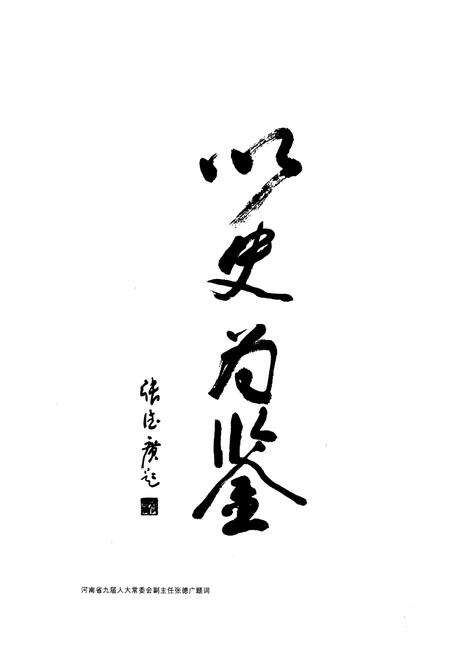 以史为鉴
张德广题
河南省九届人大常委会副主任张德广题词